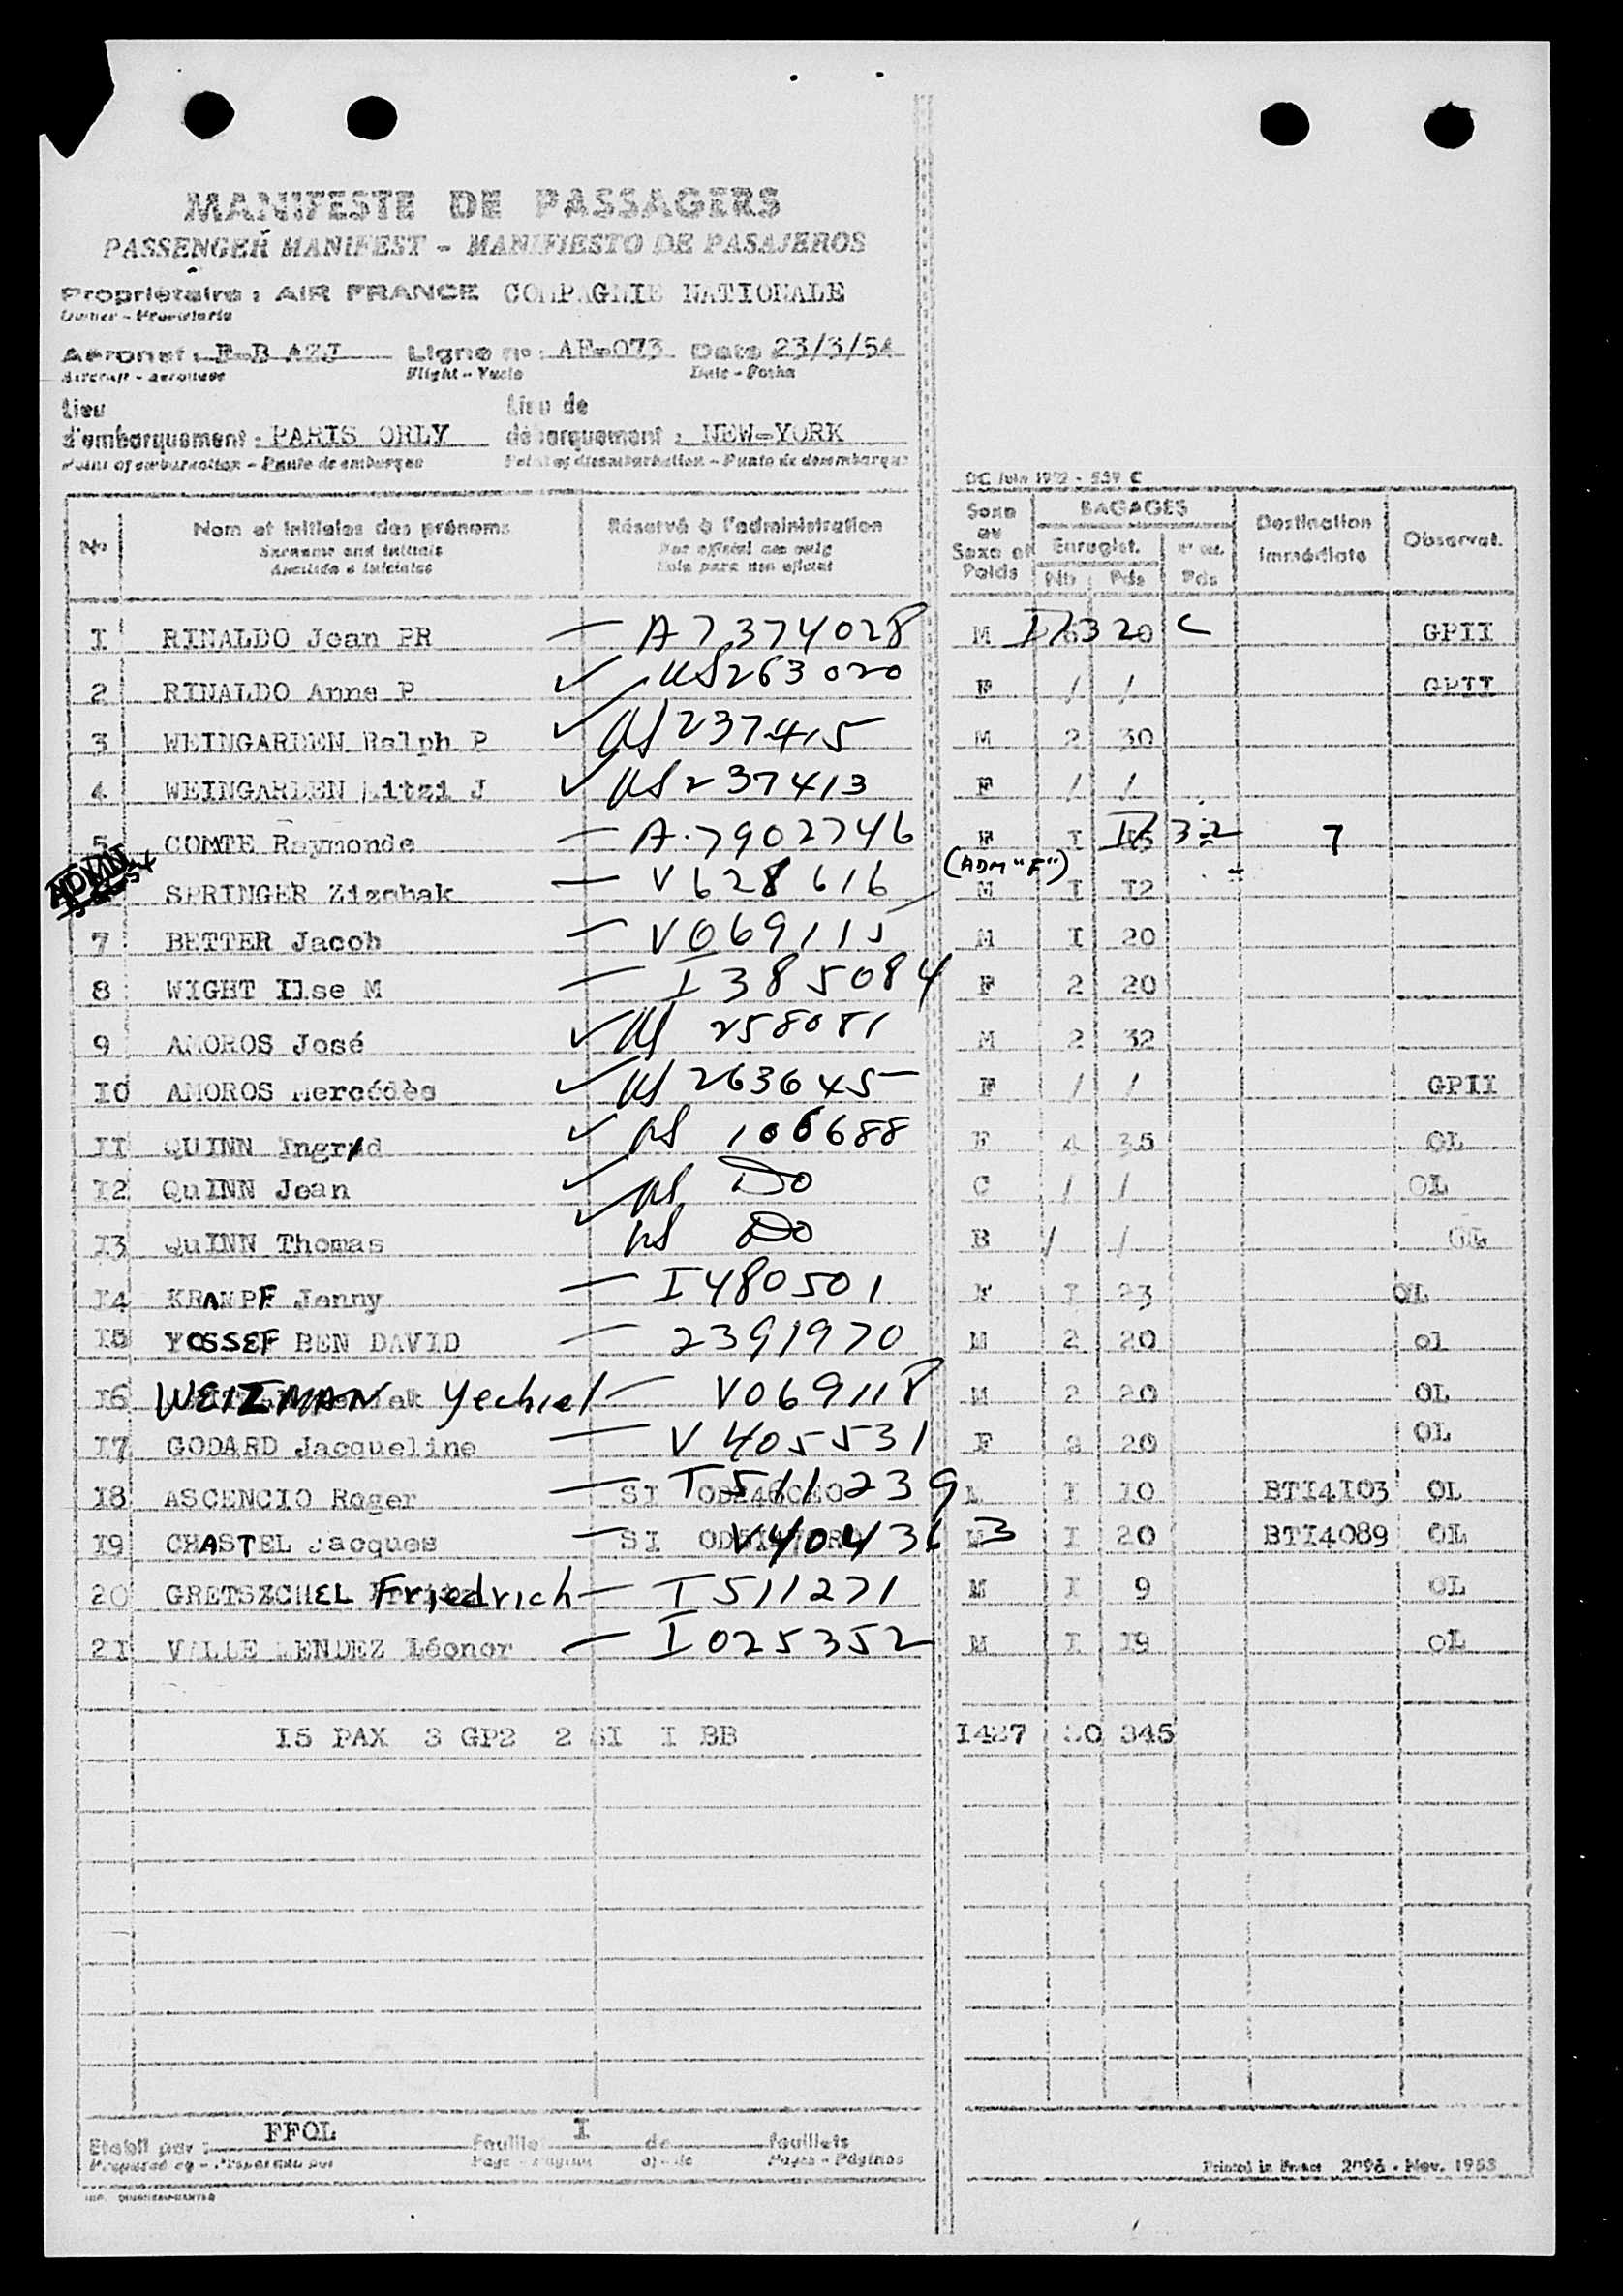 MANIFESTE DE PASSAGERS
PASSENGER MANIFEST - MANIFIESTO DE PASAJEROS
Propriétaire : AIR FRANCE COMPAGNIE NATIONALE
Owner - Propietario
Aéronef : F-B AZJ Ligne n° : AF-073 Date 23/3/54
Aircraft - Aeronave Flight - Vuelo Date - Fecha
Lieu d'embarquement : PARIS ORLY Lieu de débarquement : NEW-YORK
Point of embarkation - Punto de embarque Point of disembarkation - Punto de desembarque
DC Juin 1952 - 539 C
N° Nom et initiales des prénoms Réservé à l'administration Sexe ou Sexe et Poids BAGAGES Destination immédiate Observat.
Surname and initials For official use only Enregist.
Apellido e iniciales Solo para uso oficial Nb Pds Pds
I RINALDO Jean PR — A7374028 M 20 C GPII
2 RINALDO Anne P ✓ US263020 F / / GPII
3 WEINGARDEN Ralph P ✓ US237415 M 2 30
4 WEINGARDEN Mitzi J ✓ US237413 F / /
5 COMTE Raymonde — A.7902746 F I 32 7
ADMN SPRINGER Zizchak — V628616 (ADM "F") M I I2
7 BETTER Jacob — V069115 M I 20
8 WIGHT Ilse M — I385084 F 2 20
9 AMOROS José ✓ US 258081 M 2 32
I0 AMOROS Mercédès ✓ US 263645 F / / GPII
II QUINN Ingrid ✓ US 106688 F 4 35 OL
I2 QuINN Jean ✓ US Do C / / OL
I3 QuINN Thomas ✓ US Do B / / OL
I4 KRAMPF Jenny — I480501 F I 23 OL
I5 YOSSEF BEN DAVID — 2391970 M 2 20 ol
I6 WEIZMAN Yechiel — V069118 M 2 20 OL
I7 GODARD Jacqueline — V405531 F 2 20 OL
I8 ASCENCIO Roger — SI I511239 I I0 BTI4I03 OL
I9 CHASTEL Jacques — SI V404363 M I 20 BTI4089 OL
20 GRETSZCHEL Friedrich — I511271 M I 9 OL
2I VALLE MENDEZ Léonor — I025352 M I I9 OL
I5 PAX 3 GP2 2 SI I BB I427 20 345
Etabli par : FFOL Feuille I de feuillets
Prepared by - Preparado por Page - Página of - de Pages - Páginas
Printed in France 2096 - Nov. 1953